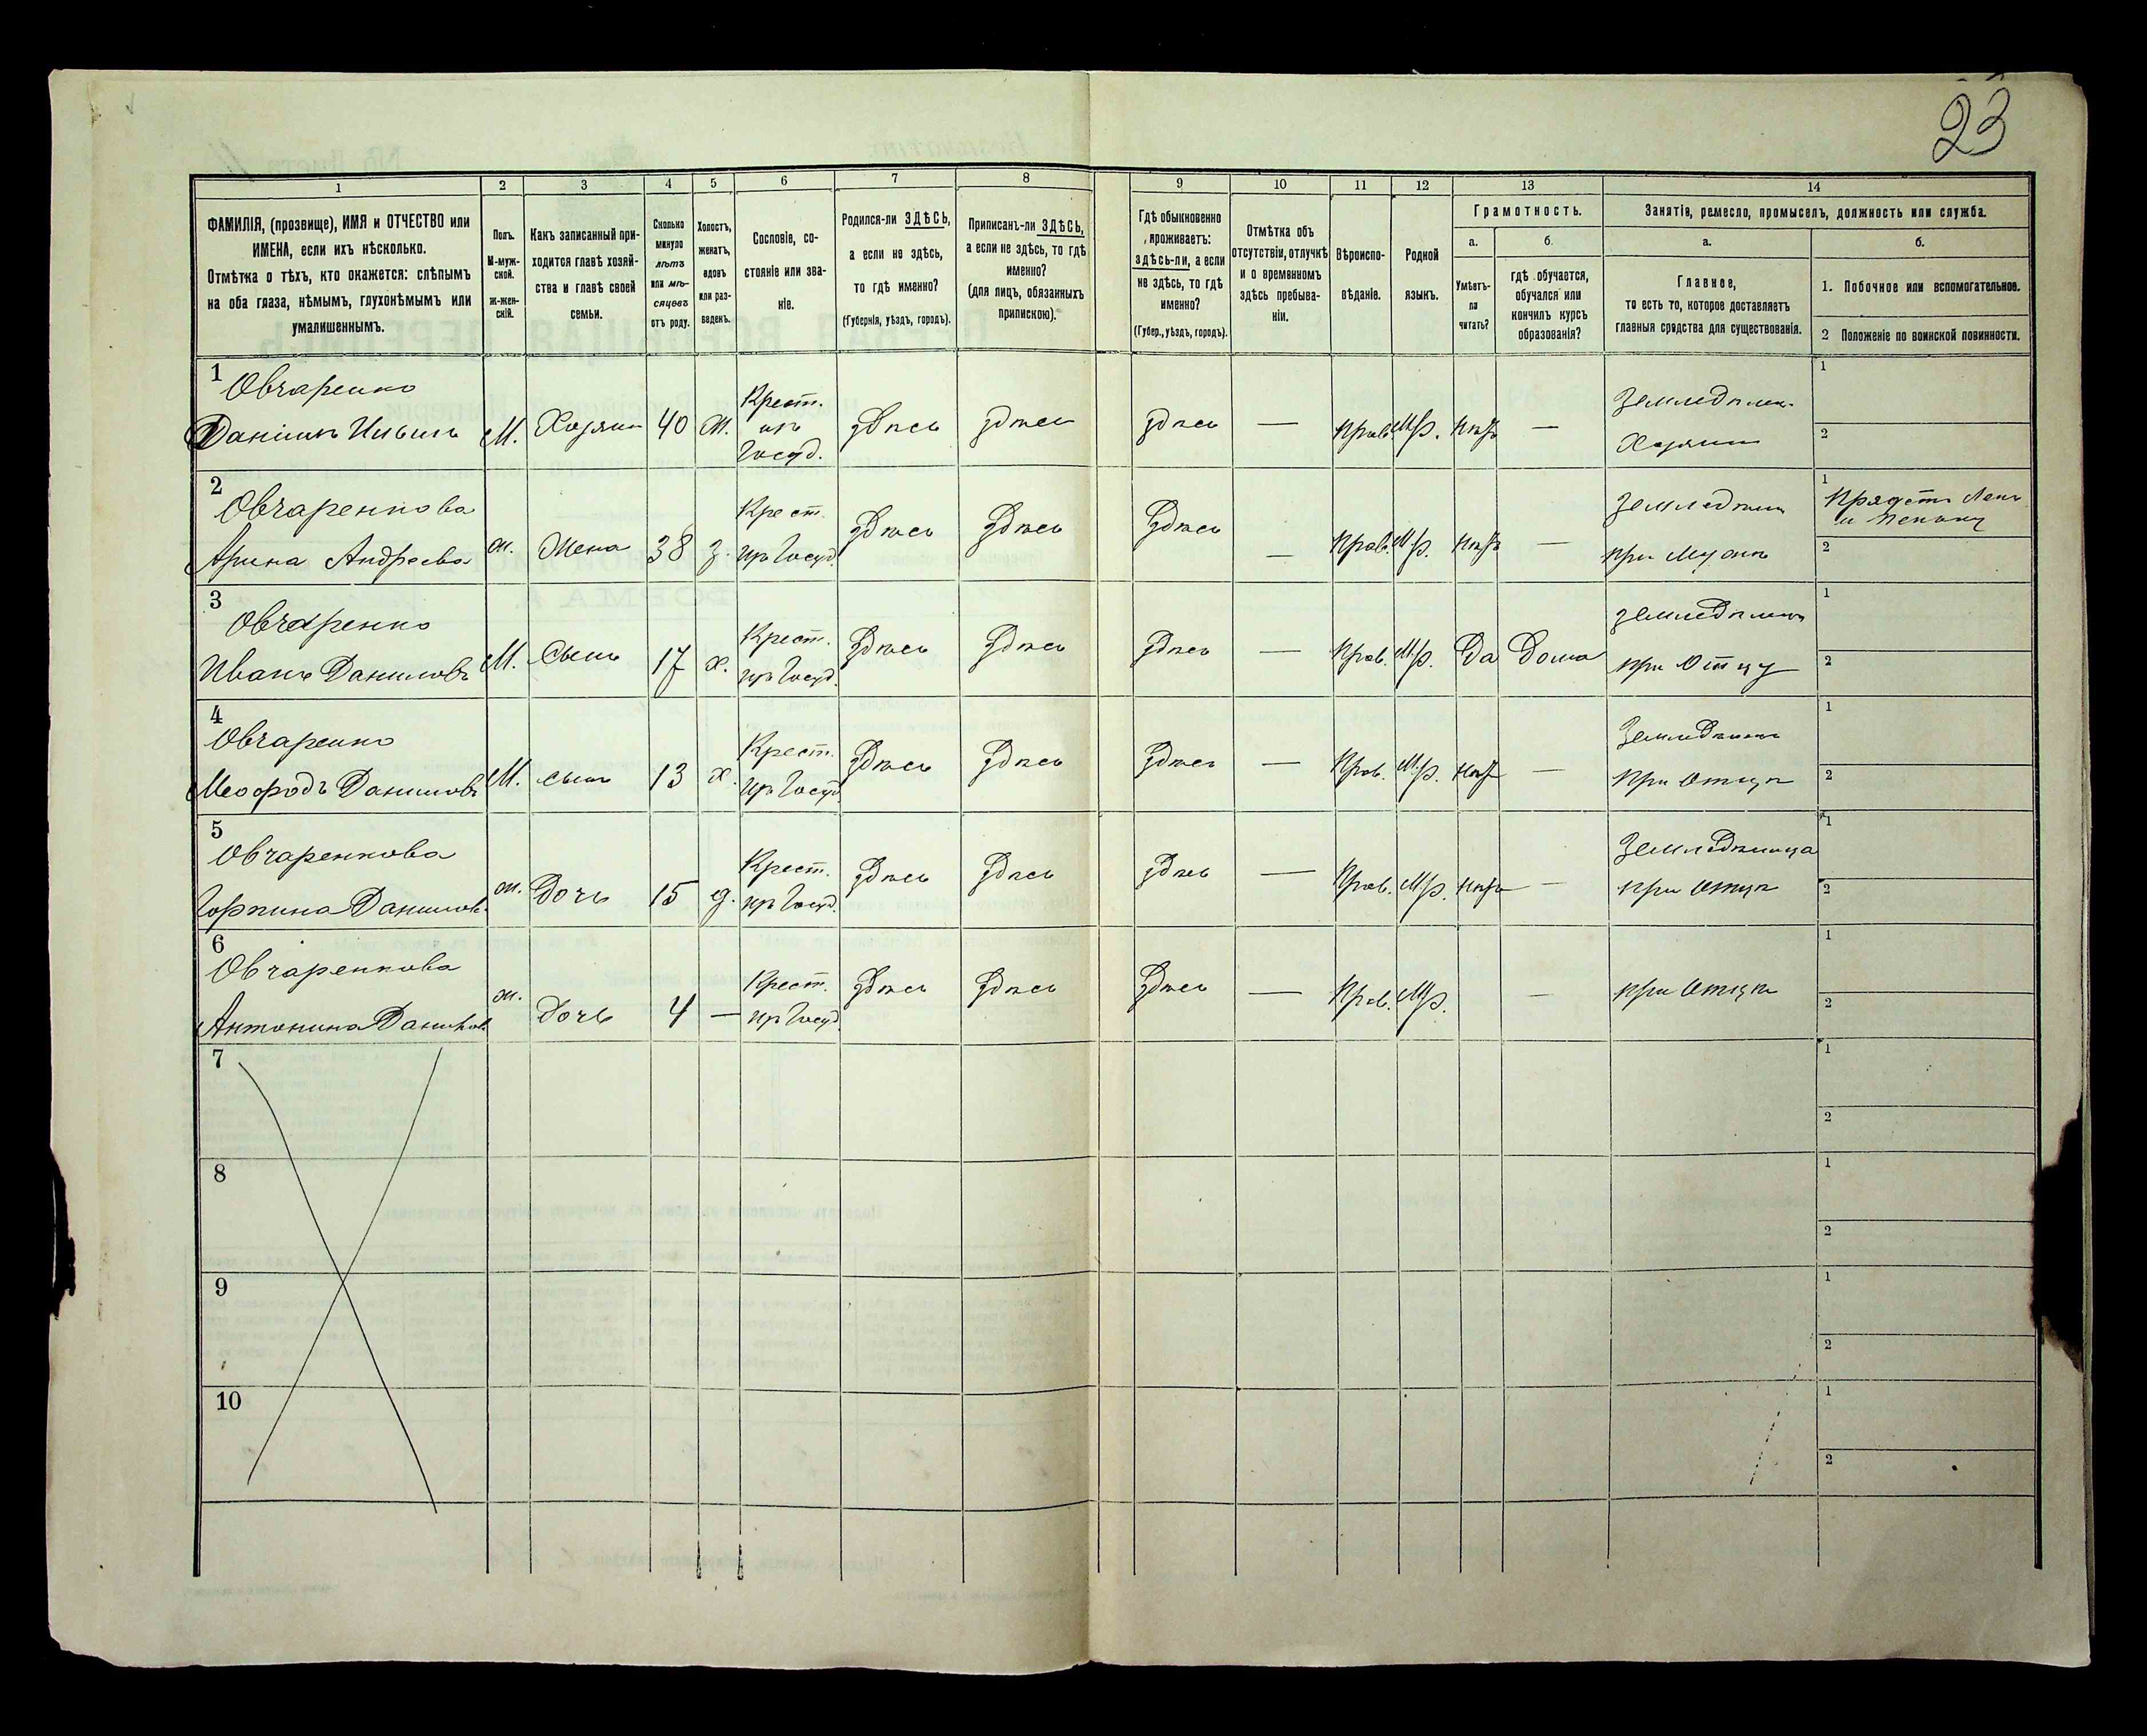 23
1 2 3 4 5 6 7 8 9 10 11 12 13 14
ФАМИЛІЯ, (прозвище), ИМЯ и ОТЧЕСТВО или
ИМЕНА, если ихъ нѣсколько.
Отмѣтка о тѣхъ, кто окажется: слѣпымъ
на оба глаза, нѣмымъ, глухонѣмымъ или
умалишеннымъ.
Полъ.
М-муж-
ской.
ж-жен-
скій.
Какъ записанный при-
ходится главѣ хозяй-
ства и главѣ своей
семьи.
Сколько
минуло
лѣтъ
или мѣ-
сяцевъ
отъ роду.
Холостъ,
женатъ,
вдовъ
или раз-
веденъ.
Сословіе, со-
стояніе или зва-
ніе.
Родился-ли ЗДѢСЬ,
а если не здѣсь,
то гдѣ именно?
(Губернія, уѣздъ, городъ).
Приписанъ-ли ЗДѢСЬ,
а если не здѣсь, то гдѣ
именно?
(для лицъ, обязанныхъ
припискою).
Гдѣ обыкновенно
проживаетъ:
здѣсь-ли, а если
не здѣсь, то гдѣ
именно?
(Губер., уѣздъ, городъ).
Отмѣтка объ
отсутствіи, отлучкѣ
и о временномъ
здѣсь пребыва-
ніи.
Вѣроиспо-
вѣданіе.
Родной
языкъ.
Грамотность.
а.
Умѣетъ-
ли
читать?
б.
гдѣ обучается,
обучался или
кончилъ курсъ
образованія?
Занятіе, ремесло, промыселъ, должность или служба.
а.
Главное,
то есть то, которое доставляетъ
главныя средства для существованія.
б.
1. Побочное или вспомогательное.
2 Положеніе по воинской повинности.
1
Овчаренко
Даніилъ Ильинъ М. Хозяин 40 Ж. Крест. изъ Госуд. Здѣсь Здѣсь Здѣсь — Прав. М.р. Нѣтъ —
Земледѣлец.
Хозяин
1
2
2
Овчаренкова
Арина Андреева ж. Жена 38 з. Крест. изъ Госуд. Здѣсь Здѣсь Здѣсь — Прав. М.р. Нѣтъ —
при мужѣ
1 Прядетъ Ленъ
и пеньку
2
3
Овчаренко
Иванъ Даниловъ М. Сынъ 17 х. Крест. изъ Госуд. Здѣсь Здѣсь Здѣсь — Прав. М.р. Да Дома
при Отцу
1
2
4
Овчаренко
Меѳодъ Даниловъ М. сынъ 13 х. Крест. изъ Госуд. Здѣсь Здѣсь Здѣсь — Прав. М.р. Нѣтъ —
при Отцѣ
1
2
5
Овчаренкова
Горпина Данилов. ж. Дочь 15 д. Крест. изъ Госуд. Здѣсь Здѣсь Здѣсь — Прав. М.р. Нѣтъ —
при Отцѣ
1
2
6
Овчаренкова
Антонина Данилов. ж. Дочь 4 — Крест. изъ Госуд. Здѣсь Здѣсь Здѣсь — Прав. М.р. —
при Отцѣ
1
2
7
1
2
8
1
2
9
1
2
10
1
2